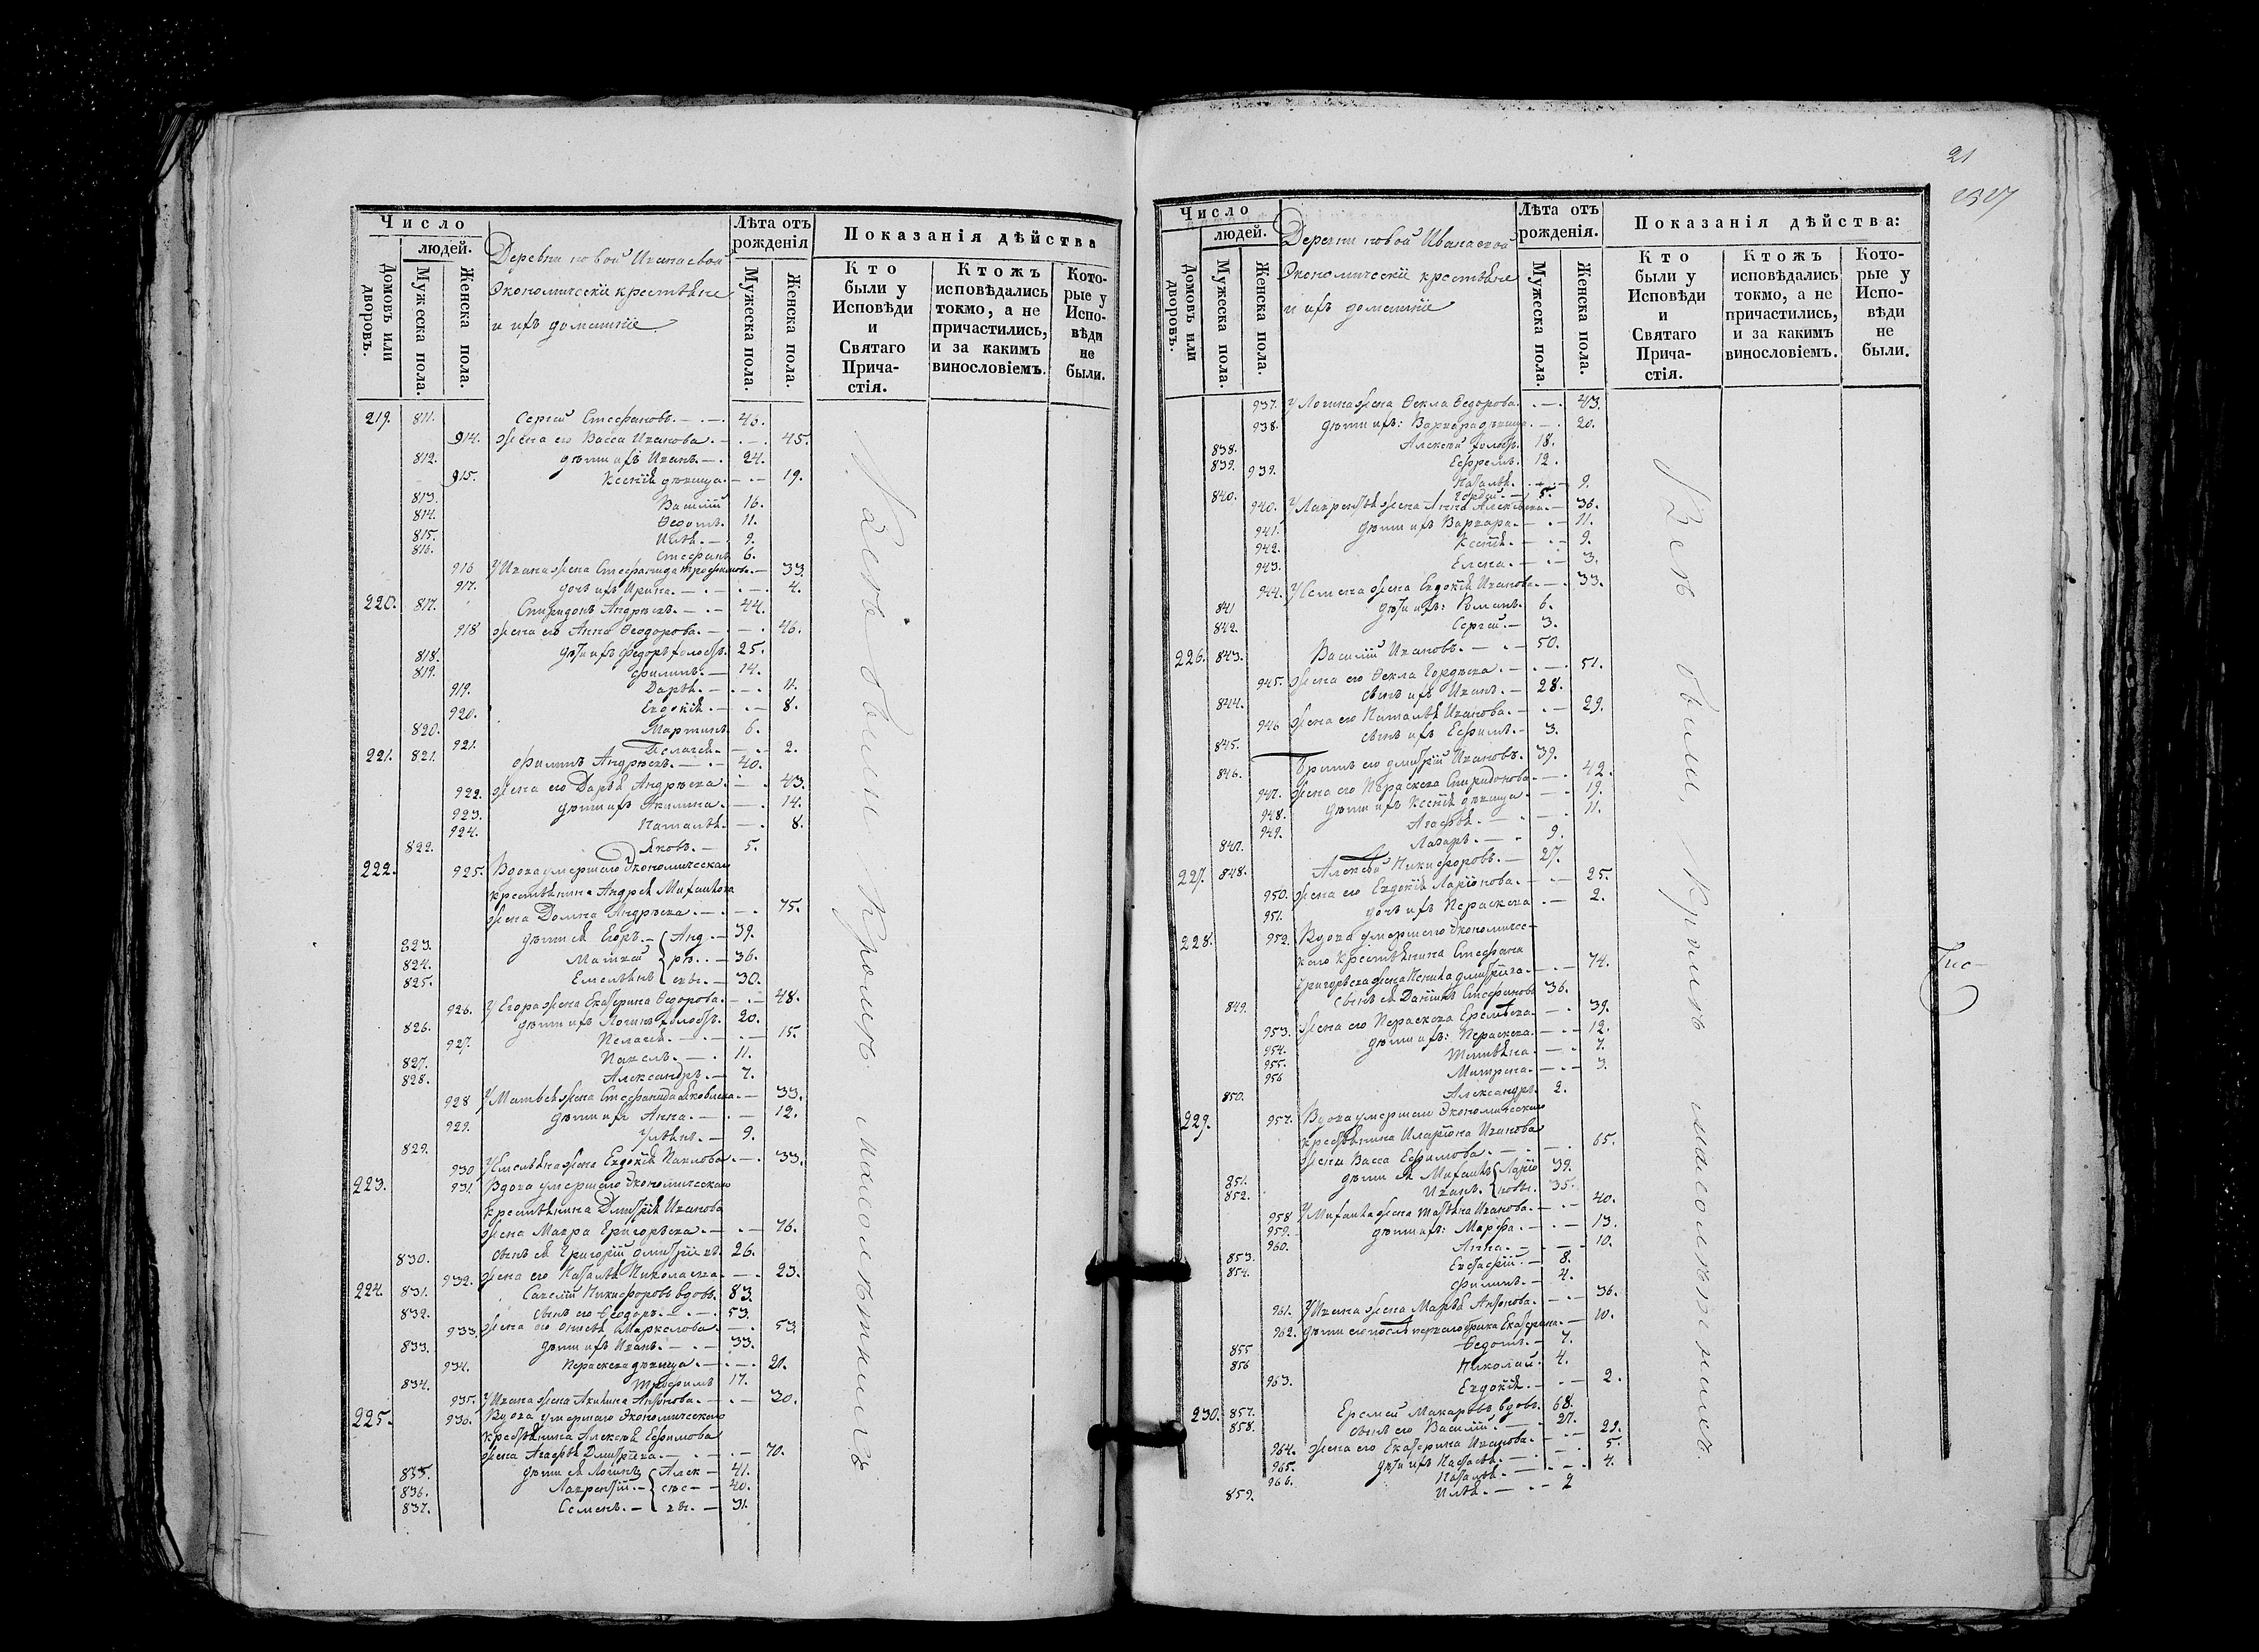 Число
людей.
Домовъ или дворовъ.
Мужеска пола.
Женска пола.
Деревни новой Иванаевой
Экономическiе крестьѣне
и ихъ домашнiе
Лѣта отъ рожденiя
Мужеска пола.
Женска пола.
Показанiя дѣйства
Кто были у Исповѣди и Святаго Прича-стiя.
Ктожъ исповѣдались токмо, а не причастились, и за какимъ винословiемъ.
Кото-рые у Испо-вѣди не были.
219. 811. Сергей Стефановъ. 46.
914. жена его Васса Иванова. 45.
812. дѣти ихъ Иванъ. 24.
915. Ксенiя дѣвица. 19.
813. Василiй 16.
814. Ѳедотъ. 11.
815. Илья. 9.
816. Стефанъ 6.
916 У Ивана жена Стефанида Трофимова. 33.
917. дочь ихъ Ирина. 4.
220. 817. Спиридонъ Андрѣевъ. 44.
918 жена его Анна Ѳеодорова. 46.
818. дѣти ихъ Федоръ холостъ. 25.
819. Филипъ. 14.
919. Дарья. 11.
920. Евдокiя. 8.
820. Мартинъ 6.
921. Пелагея. 2.
221. 821. Филипъ Андрѣевъ. 40.
922. жена его Дарья Андрѣева. 43.
923. дѣти ихъ Акилина. 14.
924. Наталья. 8.
822. Яковъ. 5.
222. 925. Вдова умершаго Экономическаго
крестьянина Андрея Михайлова
жена Домна Андрѣева. 75.
823. дѣти ея Егоръ. Анд 39.
824. Матвей рѣ 36.
825. Емельянъ евы. 30.
926. У Егора жена Екатерина Ѳедорова. 48.
826. дѣти ихъ Логинъ холостъ. 20.
927. Пелагея. 15.
827. Павелъ. 11.
828. Александръ. 7.
928 У Матвея жена Стефанида Яковлева. 33.
929. дѣти ихъ Анна. 12.
829. Ульянъ. 9.
930 У Емельяна жена Евдокiя Павлова. 33.
223. 931. Вдова умершаго Экономическаго
крестьянина Дмитрiя Иванова
жена Мавра Григорьева. 76.
830. сынъ ея Григорiй Дмитрiевъ. 26.
932. жена его Наталья Николаева. 23.
224. 831. Савелiй Никифоровъ вдовъ. 83.
832. сынъ его Ѳеодоръ. 53.
933. жена его Маркелова. 53.
833. дѣти ихъ Иванъ. 33.
934. Пераскева дѣвица. 21.
834. Трофимъ 17.
935. У Ивана жена Акилина Антонова. 30.
225. 936. Вдова умершаго Экономическаго
крестьянина Алексѣя Ефимова
жена Агафья Дмитрiева. 70.
835. дѣти ея Логинъ Алек 41.
836. Лаврентiй. сѣе 40.
837. Семенъ. вы. 31.
Всѣ были, кромѣ малолѣтнихъ
21
2327
Число
людей.
Домовъ или дворовъ.
Мужеска пола.
Женска пола.
Деревни новой Иванаевой
Экономическiе крестьѣне
и ихъ домашнiе
Лѣта отъ рожденiя.
Мужеска пола.
Женска пола.
Показанiя дѣйства:
Кто были у Исповѣди и Святаго Прича-стiя.
Ктожъ исповѣдались токмо, а не причастились, и за какимъ винословiемъ.
Кото-рые у Испо-вѣди не были.
937. У Логина жена Ѳекла Ѳедорова. 43.
938. дѣти ихъ: Варвара дѣвица. 20.
838. Алексѣй холостъ. 18.
839. Ефремъ. 12.
939. Наталья. 9.
840. Гордей. 5.
940. У Лаврентья жена Анна Алексѣева. 36.
941. дѣти ихъ Варвара. 11.
942. Ксенiя. 9.
943. Елена. 3.
944. У Семена жена Евдокiя Иванова. 33.
841 дѣти ихъ: 6.
842. Сергей. 3.
226. 843. Василiй Ивановъ. 50.
945. жена его Ѳекла Гордѣева. 51.
844. сынъ ихъ Иванъ. 28.
946 жена его Наталья Иванова. 29.
845. сынъ ихъ Ефимъ. 3.
846. Братъ его Дмитрiй Ивановъ. 39.
947. жена его Пераскева Спиридонова. 42.
948. дѣти ихъ Ксенiя дѣвица. 19.
949. Агафья. 11.
847. Лазаръ. 9.
227. 848. Алексѣй Никифоровъ. 27.
950. жена его Евдокiя Ларiонова. 25.
951. дочь ихъ Пераскева 2.
228. 952. Вдова умершаго Экономичес-
каго крестьянина Стефана
Григорьева жена Дмитрiева. 74.
849. сынъ ея Данiилъ Стефановъ 36.
953. жена его Пераскева Еремѣева. 39.
954. дѣти ихъ: Пераскева. 12.
955. Татьяна. 7.
956 Матрена. 3.
850. Александръ. 2.
229. 957. Вдова умершаго Экономическаго
крестьянина Иларiона Иванова
жена Васса Ефимова. 65.
851. дѣти ея Михайла Ларiо 39.
852. Иванъ. новы. 35.
958 У Михайла жена Татьяна Иванова. 40.
959. дѣти ихъ: Марфа. 13.
960. Анна. 10.
853. Евстафiй. 8.
854. Филипъ. 4.
961. У Ивана жена Марья Антонова. 36.
962. дѣти его послѣ перваго брака Екатерина. 10.
855 Ѳедотъ. 7.
856 Николай. 4.
963. Евдокiя. 2.
230. 857. Еремей Макаровъ вдовъ. 68.
858. сынъ его Василiй. 27.
964. жена его Екатерина Иванова. 29.
965. дѣти ихъ Настасья. 5.
966. Наталья. 4.
859. Илья. 2
Всѣ были, кромѣ малолѣтнихъ.